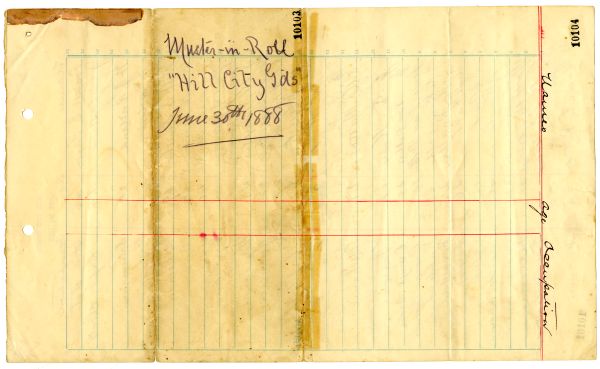 10103
Muster-in-Roll
"Hill City Gds"
June 30th 1888
10104
Names age Occupation
10101